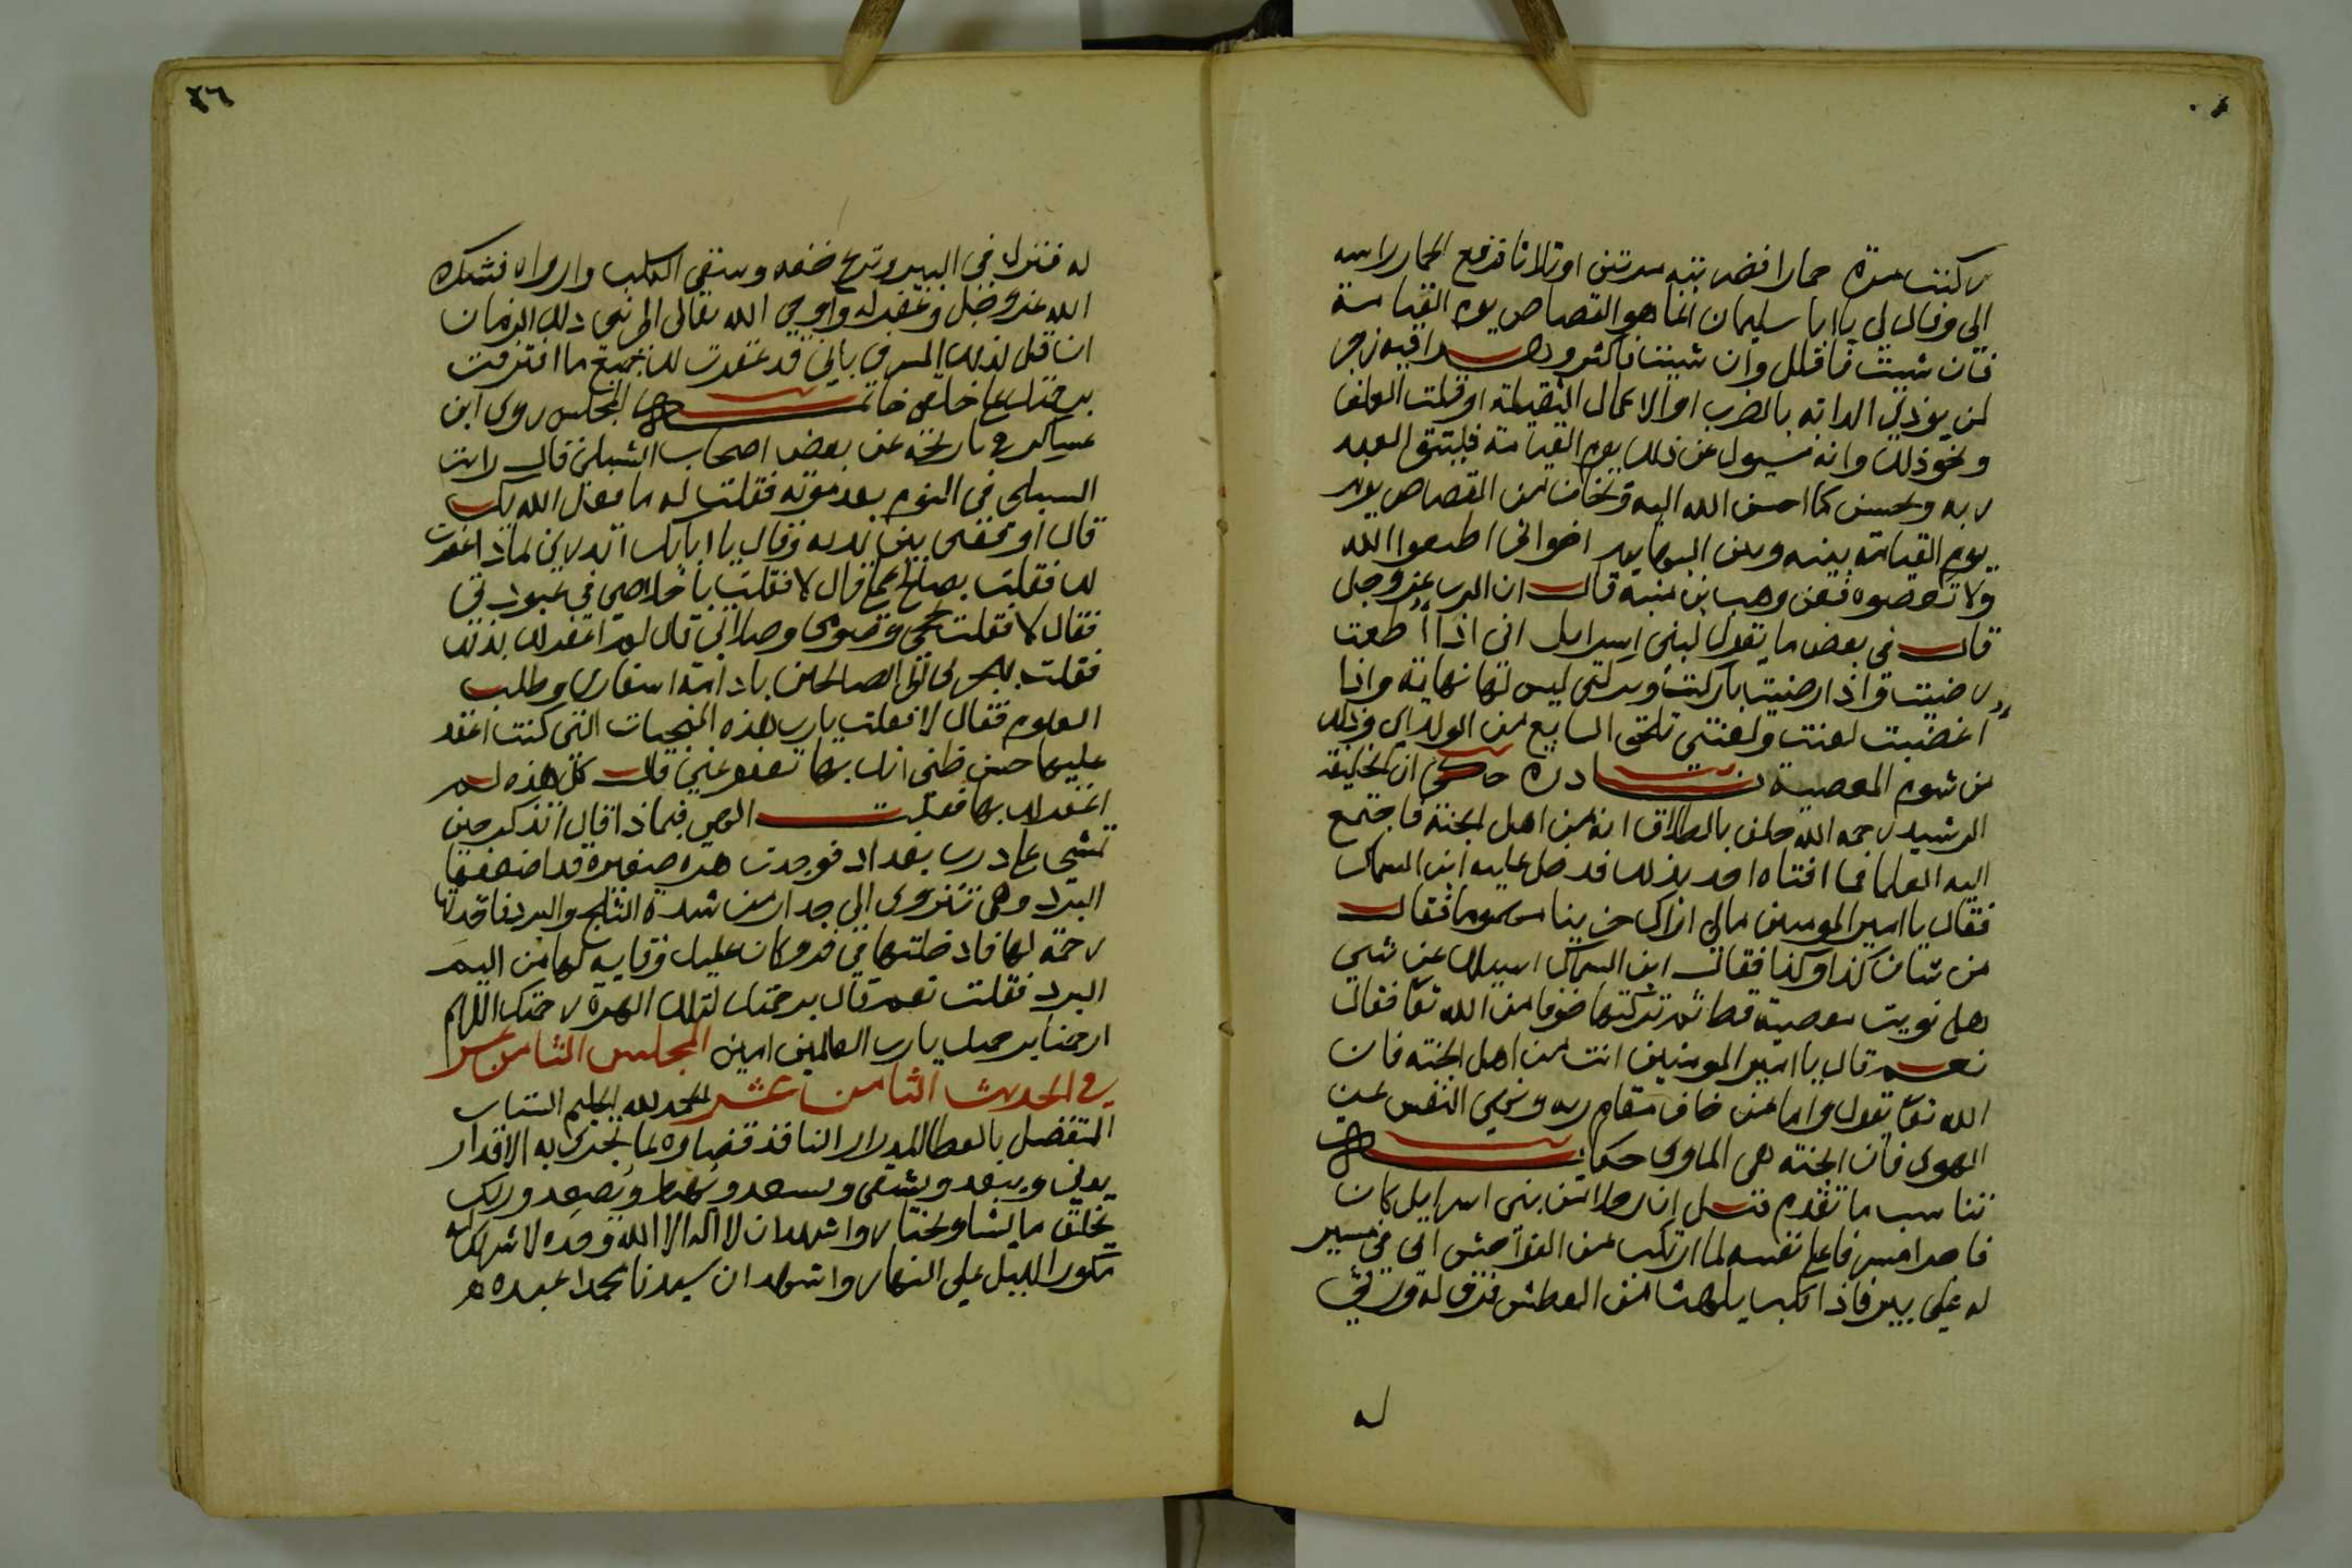 ركبت مرة حمارا فضربته مرتين او ثلاثا فرفع الحمار راسه
الي وقال لي يا ابا سليمان انما هو القصاص يوم القيامة
فان شيت فاقلل وان شيت فاكثر وهذا فيه زجر
لمن يوذي الدابة بالضرب او الاعمال الثقيلة او قلت العلف
ونحو ذلك وانه مسيول عن ذلك يوم القيامة فليتق العبد
ربه ويحسن كما احسن الله اليه ويخاف من القصاص
يوم القيامة بينه وبين البهايم اخواني اطيعوا الله
ولا تعصوه فعن وهب بن منبه قال ان الرب عز وجل
قال في بعض ما يقول لبني اسرايل اني اذا اطعت
رضيت واذا رضيت باركت وبركتي ليس لها نهاية واذا
اغضبت لعنت ولعنتي تلحق السابع من الولد اي وذلك
من شوم المعصية نادرة حكي ان الخليفة
الرشيد رحمه الله حلف بالطلاق انه من اهل الجنة فاجتمع
اليه العلما فما افتاه احد بذلك فدخل عليه ابن السماك
فقال يا امير المومنين مالي اراك حزينا مهموما فقال
من شان كذا وكذا فقال ابن السماك اسيلك عن شي
هل نويت معصية قط ثم تركتها خوفا من الله تعا فقال
نعم قال يا امير المومنين انت من اهل الجنه فان
الله تعا يقول واما من خاف مقام ربه ونهي النفس عن
الهوي فان الجنه هي الماوي حكاية
تناسب ما تقدم قيل ان رجلا من بني اسرايل كان
قاصدا مسرفا علي نفسه لما ارتكب من الفواحش اتي في مسير
له علي بير فاذا كلب يلهث من العطش فرق له ورثي
له
٢٦
له فنزل في البير ونزع خفه وسقي الكلب وارواه فشكره
الله عز وجل وغفر له واوحي الله تعالي الي نبي ذلك الزمان
ان قل لذلك المسرف باني قد غفرت لك جميع ما اقترفت
برحمتك علي خلقي خاتمة المجلس روي ابن
عساكر في تاريخه عن بعض اصحاب الشبلي قال رايت
الشبلي في النوم بعد موته فقلت له ما فعل الله بك
قال اوقفني بين يديه وقال يا ابا بكر اتدري لماذا غفرت
لك فقلت بصالح عملي قال لا فقلت باخلاصي في عبوديتي
فقال لا فقلت بحجي وصومي وصلاتي قال لم اغفر لك بذلك
فقلت بهجرتي الي الصالحين بادامة اسفاري وطلب
العلوم فقال لا فقلت يارب هذه المنجيات التي كنت اعقد
عليها حسن ظني انك بها تعفو عني قال كل هذه لم
اغفر لك بها فقلت الهي فبماذا قال اتذكر حين
تمشي علي درب بغداد فوجدت هرة صغيرة قد اضعفها
البرد وهي تنزوي الي جدار من شدة الثلج والبرد فاخذتها
رحمة لها فادخلتها في فرو كان عليك وقاية لها من اليم
البرد فقلت نعم قال برحمتك لتلك الهرة رحمتك اللهم
ارحمنا برحمتك يارب العالمين امين المجلس الثامن عشر
في الحديث الثامن عشر الحمد لله الحليم الستار
المتفضل بالعطا المدرار النافذ قضاوه بما تجري به الاقدار
يدني ويبعد ويشقي ويسعد ويهبط ويصعد وربك
يخلق ما يشا ويختار واشهد ان لا اله الا الله وحده لا شريك له
يكور الليل علي النهار واشهد ان سيدنا محمدا عبده